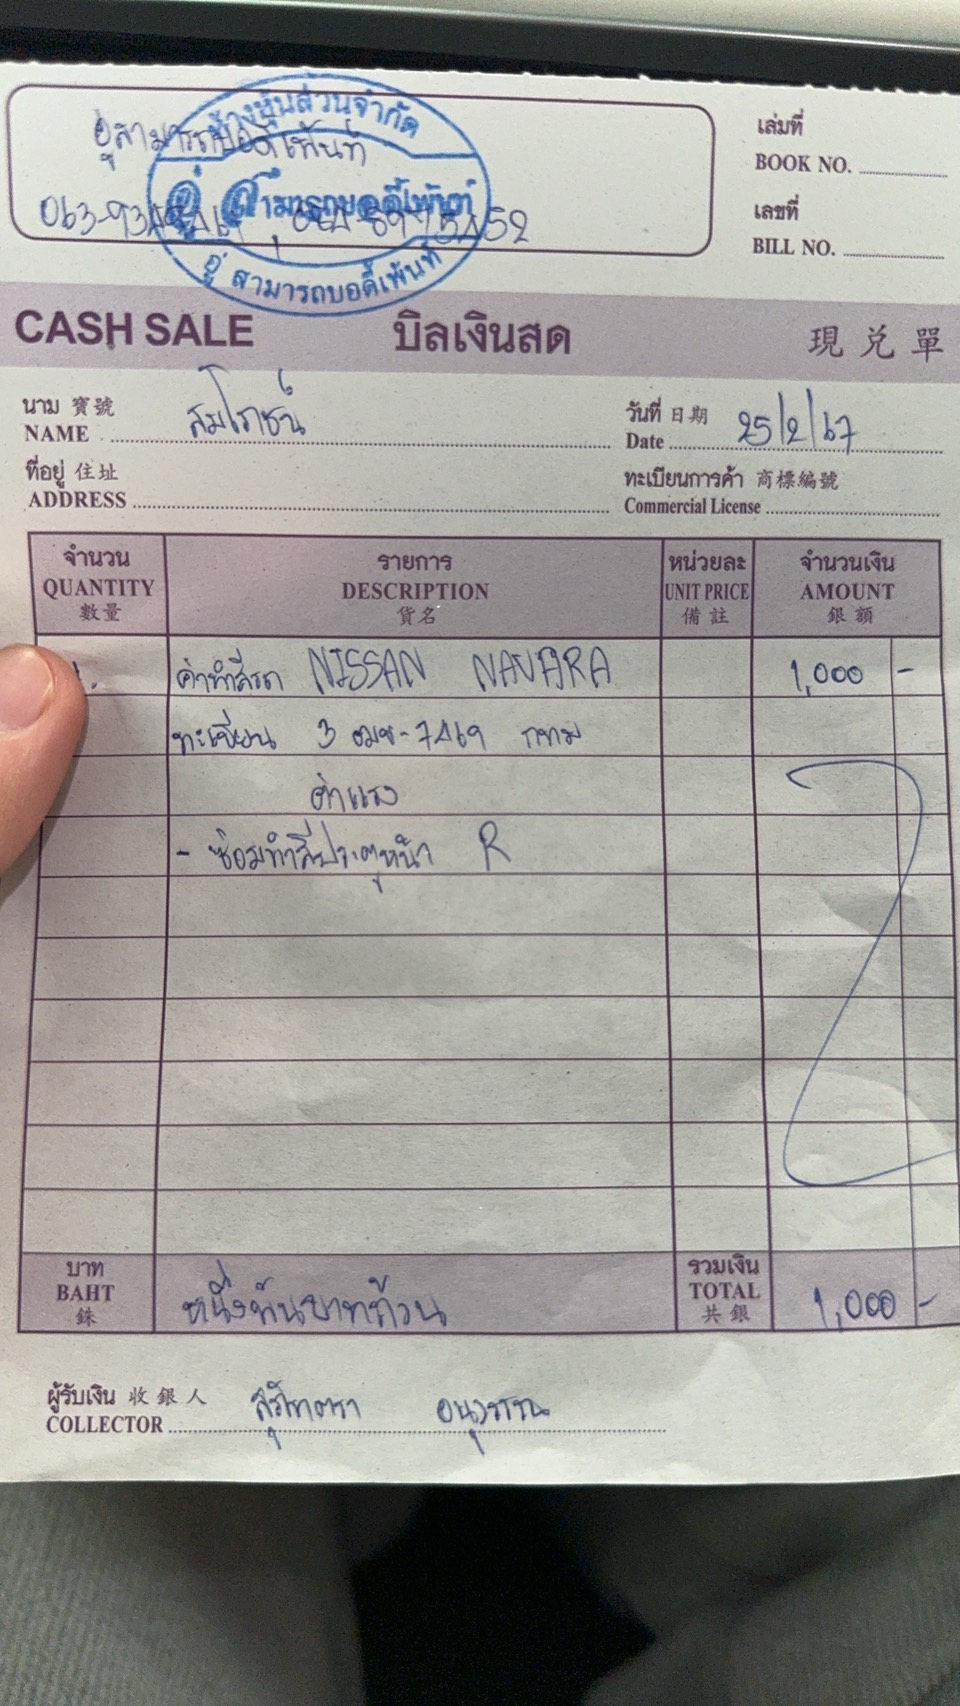 ห้างหุ้นส่วนจำกัด
อู่สามารถบอดี้เพ้นท์
อู่ สามารถบอดี้เพ้นท์
อู่ สามารถบอดี้เพ้นท์
เล่มที่
BOOK NO.
เลขที่
BILL NO.
CASH SALE บิลเงินสด 現兌單
นาม 寶號 NAME สมโภชน์
วันที่ 日期 Date 25/2/67
ที่อยู่ 住址 ADDRESS
ทะเบียนการค้า 商標編號 Commercial License
จำนวน รายการ หน่วยละ จำนวนเงิน
QUANTITY DESCRIPTION UNIT PRICE AMOUNT
數量 貨名 備註 銀額
ค่าทำสีรถ NISSAN NAVARA 1,000 -
ทะเบียน 3 ฒฆ-7469 กทม
ค่าแรง
- ซ่อมทำสีประตูหน้า R
บาท BAHT 銖 หนึ่งพันบาทถ้วน รวมเงิน TOTAL 共銀 1,000 -
ผู้รับเงิน 收銀人
COLLECTOR